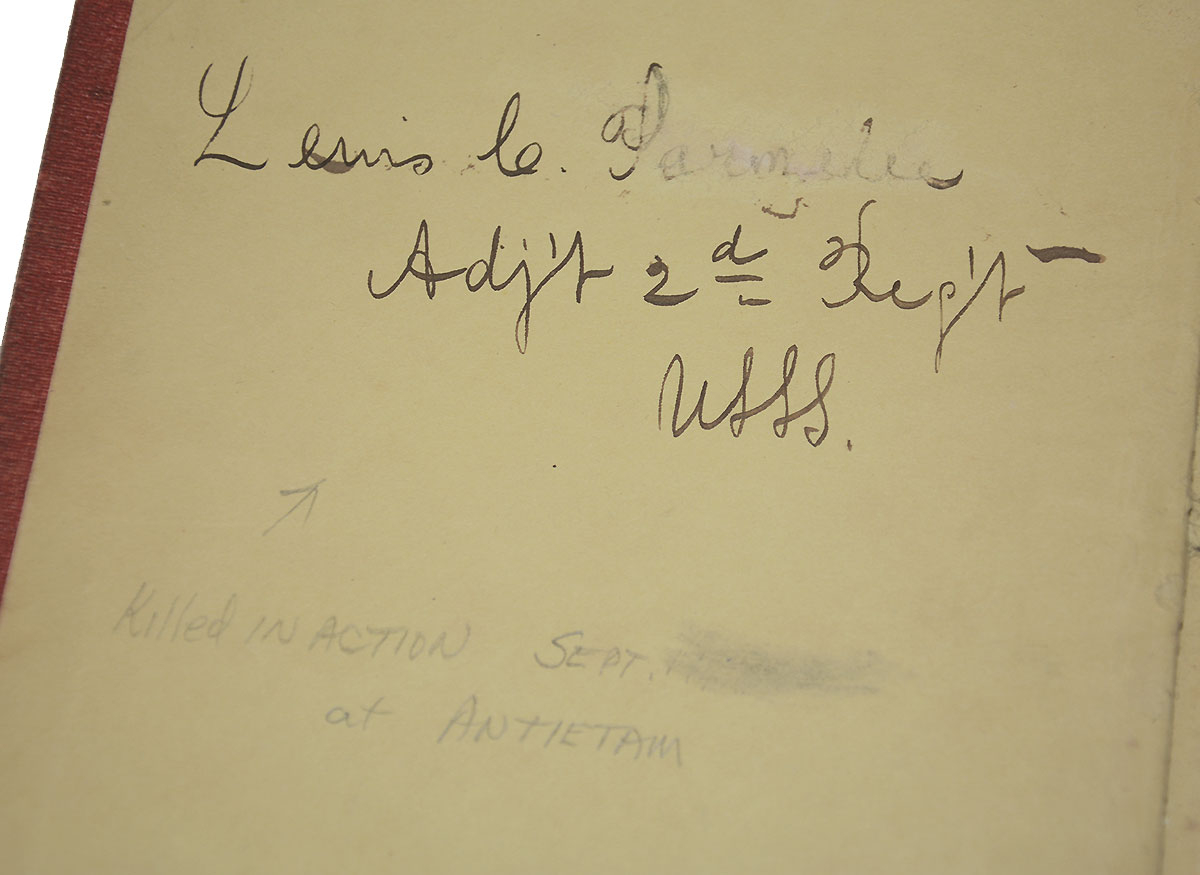 Lewis C. Parmelee
Adj't 2d Reg't
USSS.
Killed IN ACTION SEPT.
at ANTIETAM